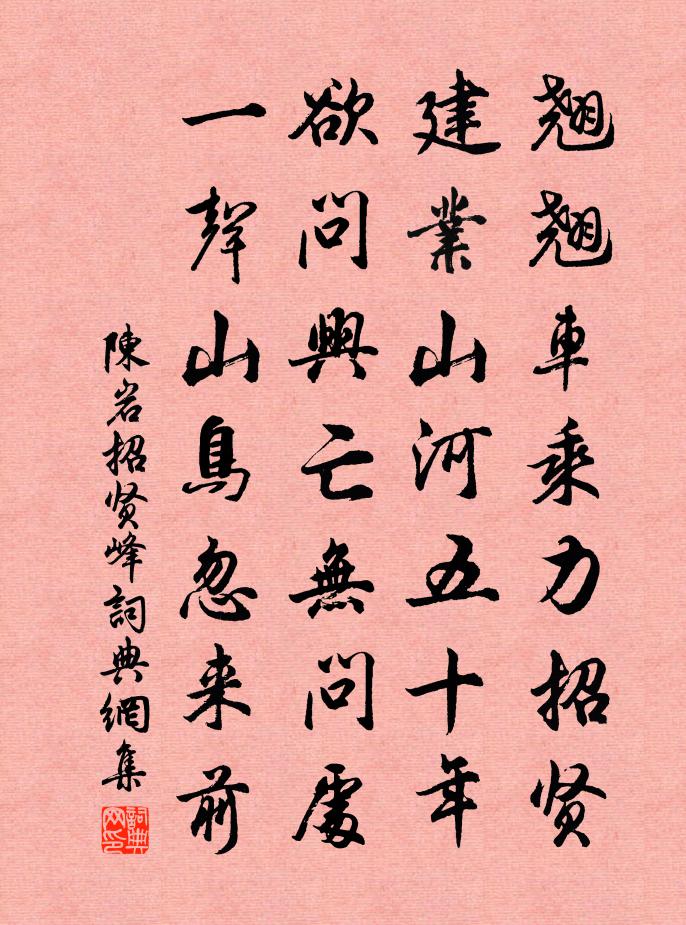 翹翹車乘力招贤
建業山河五十年
欲問興亡無問處
一聲山鳥忽来前
陳岩招贤峰詞典網集
詞典网印